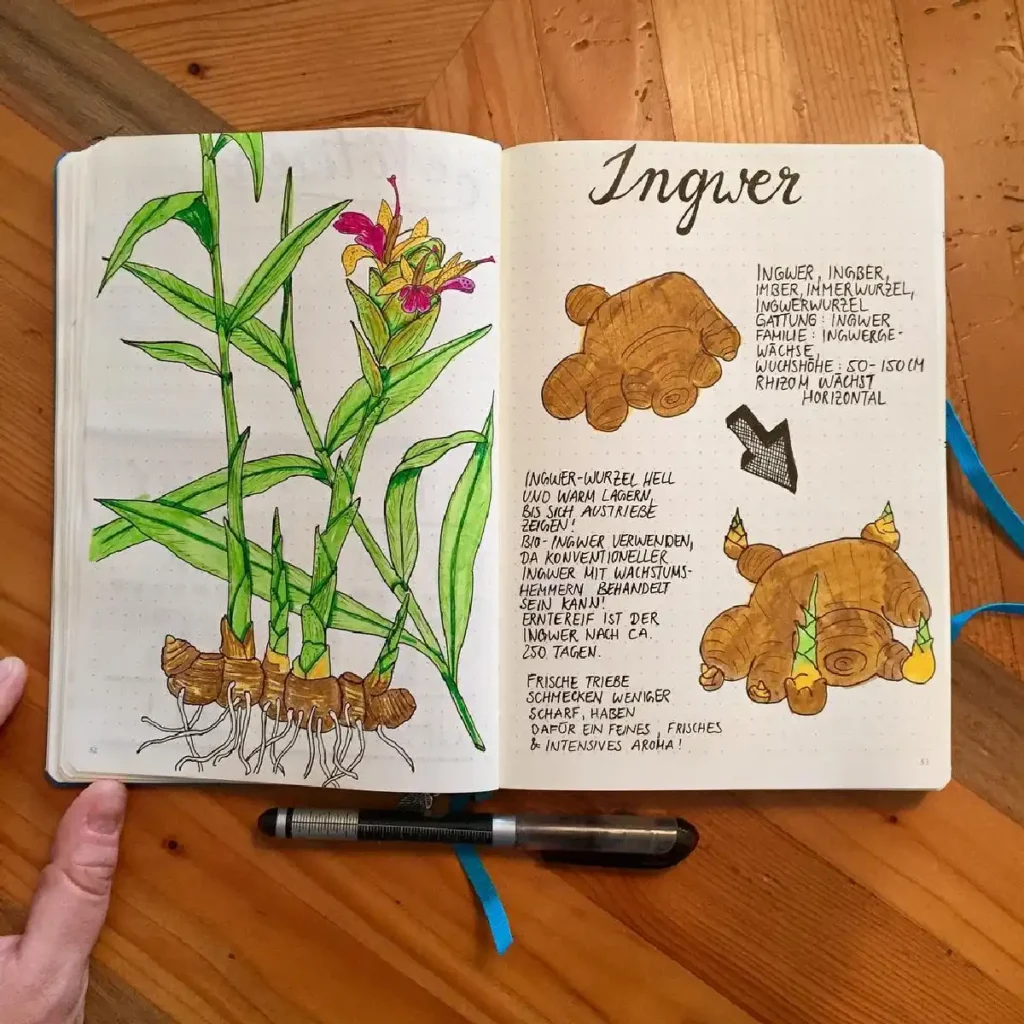 Ingwer
INGWER, INGBER,
IMBER, IMMERWURZEL,
INGWERWURZEL
GATTUNG: INGWER
FAMILIE: INGWERGE-
WÄCHSE,
WUCHSHÖHE: 50-150CM
RHIZOM WÄCHST
HORIZONTAL
INGWER-WURZEL HELL
UND WARM LAGERN,
BIS SICH AUSTRIEBE
ZEIGEN!
BIO-INGWER VERWENDEN,
DA KONVENTIONELLER
INGWER MIT WACHSTUMS-
HEMMERN BEHANDELT
SEIN KANN!
ERNTEREIF IST DER
INGWER NACH CA.
250 TAGEN.
FRISCHE TRIEBE
SCHMECKEN WENIGER
SCHARF, HABEN
DAFÜR EIN FEINES, FRISCHES
& INTENSIVES AROMA!
52
53